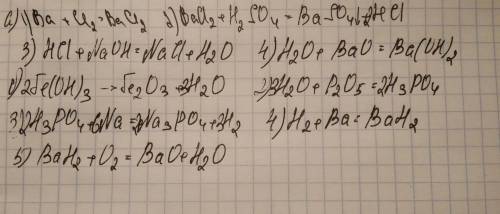 а) 1) Ba + Cl₂ = BaCl₂ 2) BaCl₂ + H₂SO₄ = BaSO₄↓ + 2HCl
3) HCl + NaOH = NaCl + H₂O 4) H₂O + BaO = Ba(OH)₂
1) 2Fe(OH)₃ → Fe₂O₃ + 3H₂O 2) 3H₂O + P₂O₅ = 2H₃PO₄
3) 2H₃PO₄ + 6Na = 2Na₃PO₄ + 3H₂ 4) H₂ + Ba = BaH₂
5) BaH₂ + O₂ = BaO + H₂O